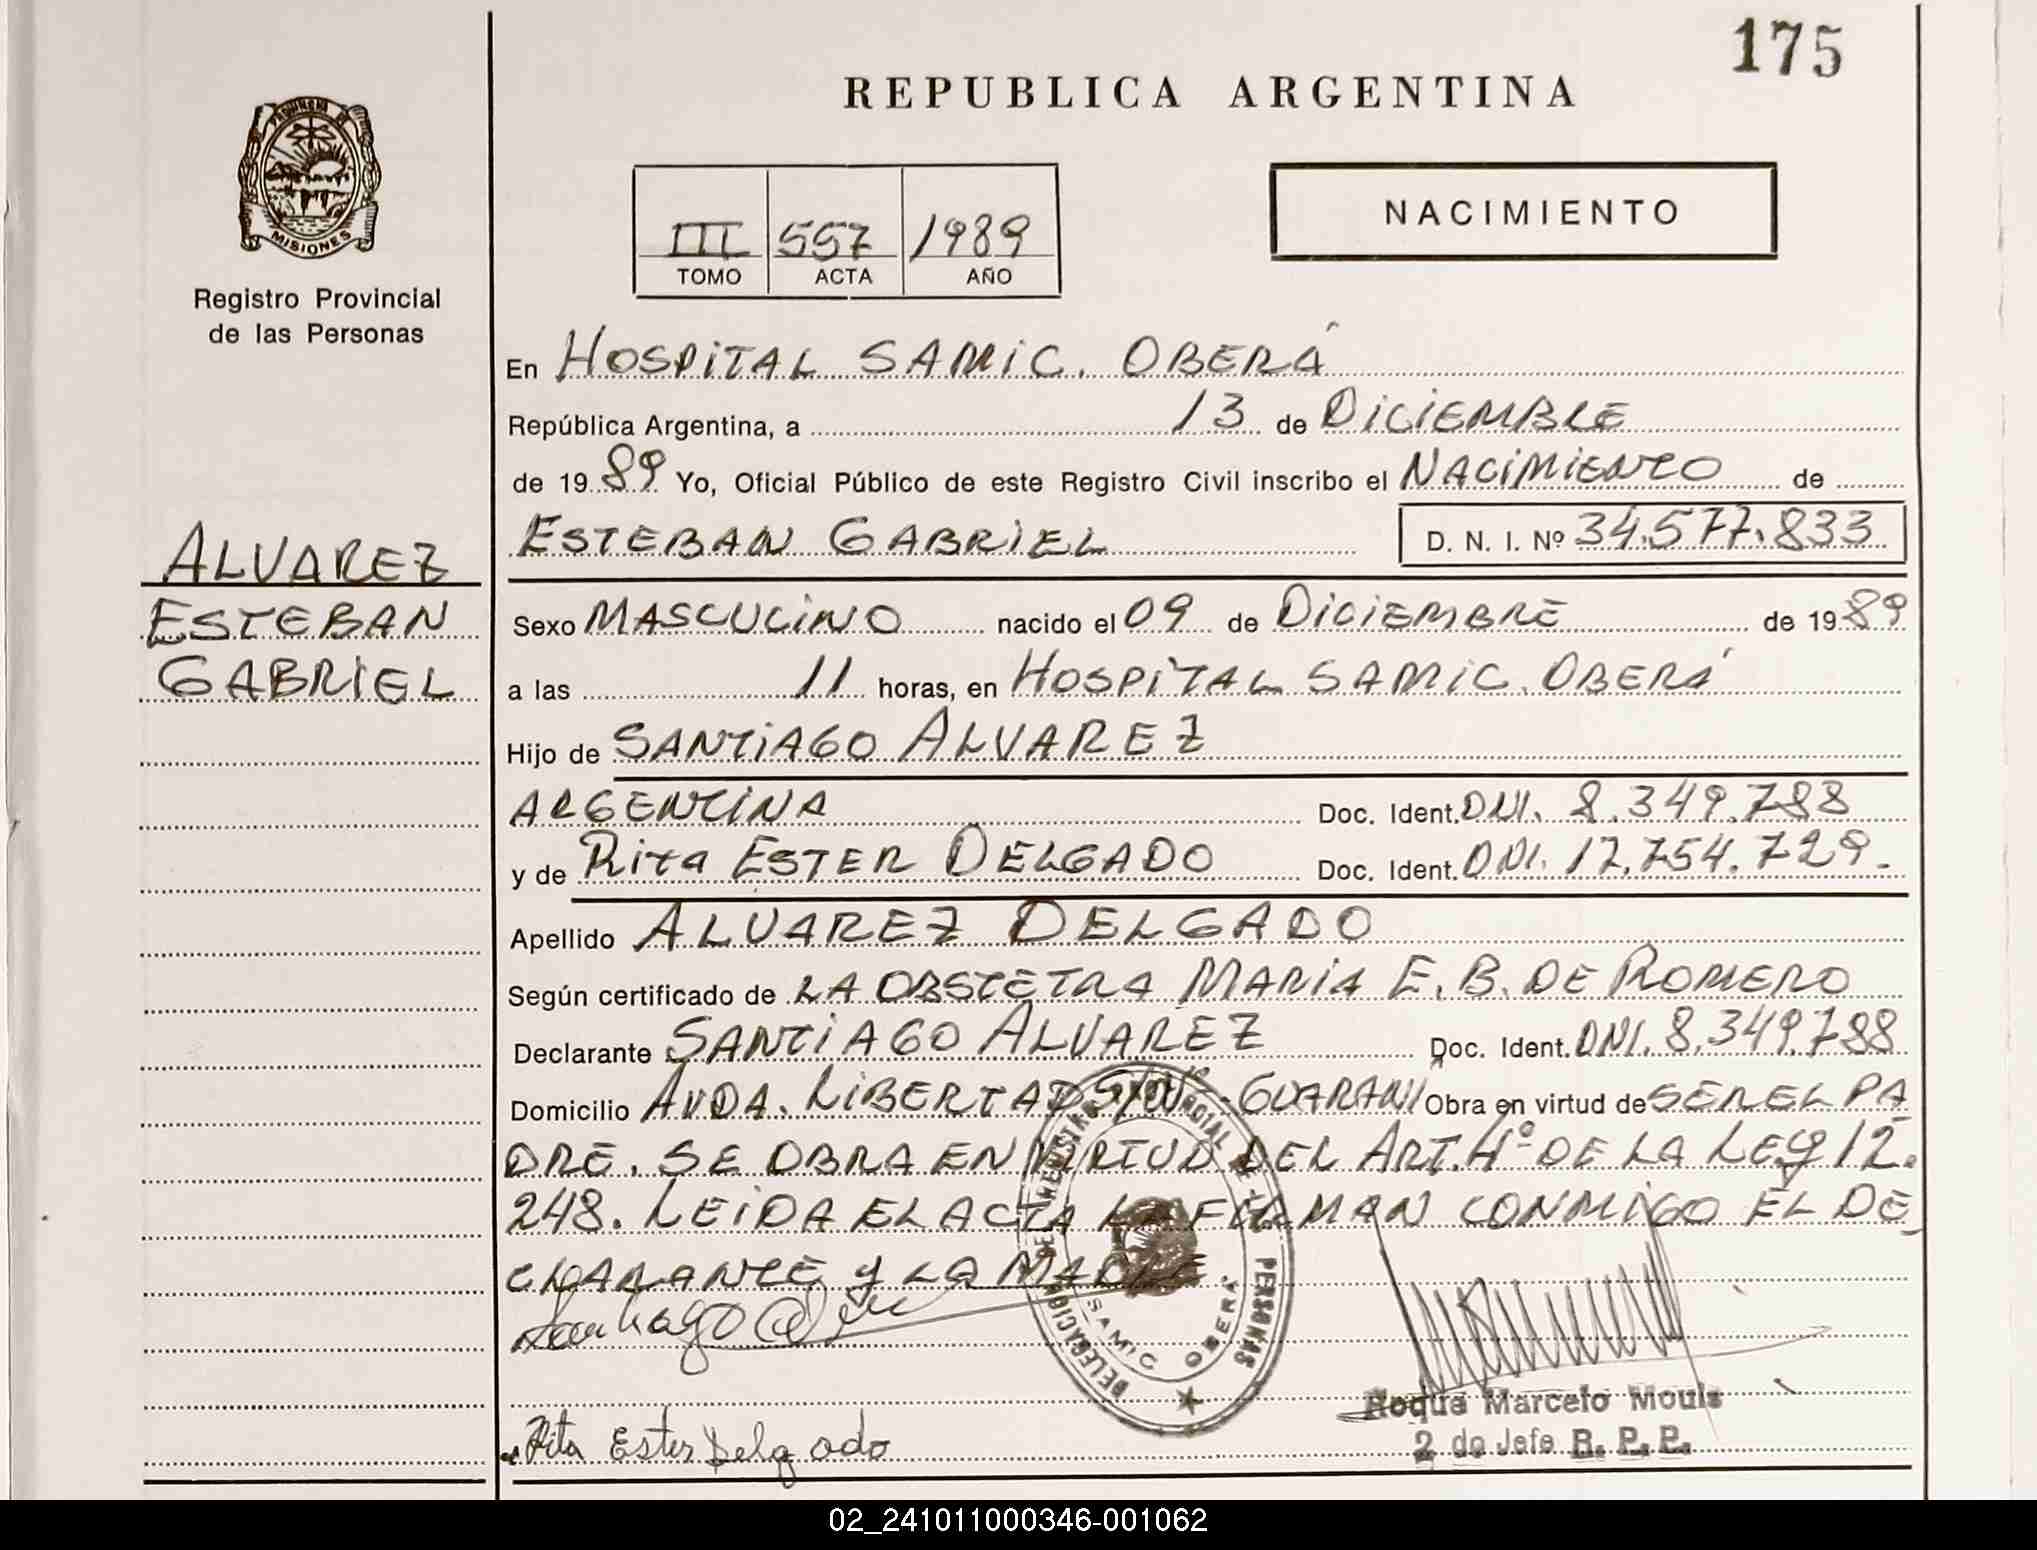 175
REPUBLICA ARGENTINA
MISIONES
Registro Provincial
de las Personas
III 557 1989
TOMO ACTA AÑO
NACIMIENTO
En HOSPITAL SAMIC. OBERÁ
República Argentina, a 13 de DICIEMBRE
de 1989 Yo, Oficial Público de este Registro Civil inscribo el NACIMIENTO de
ESTEBAN GABRIEL D. N. I. Nº 34.577.833
ALVAREZ
ESTEBAN
GABRIEL
Sexo MASCULINO nacido el 09 de DICIEMBRE de 1989
a las 11 horas, en HOSPITAL SAMIC. OBERÁ
Hijo de SANTIAGO ALVAREZ
ARGENTINA Doc. Ident. DNI. 8.349.788
y de Rita ESTER DELGADO Doc. Ident. DNI. 17.754.729.
Apellido ALVAREZ DELGADO
Según certificado de LA OBSTETRA MARIA E. B. DE ROMERO
Declarante SANTIAGO ALVAREZ Doc. Ident. DNI. 8.349.788
Domicilio AVDA. LIBERTAD S/N - GUARANI Obra en virtud de SER EL PA
DRE. SE OBRA EN VIRTUD DEL ART. 4º DE LA LEY 12.
248. LEIDA EL ACTA LA FIRMAN CONMIGO EL DE
CLARANTE Y LA MADRE.
Santiago
DELEGACION DEL REGISTRO PROVINCIAL DE LAS PERSONAS
SAMIC OBERA
Rita Ester Delgado
Roque Marcelo Mouls
2 do Jefe R. P. P.
02_241011000346-001062